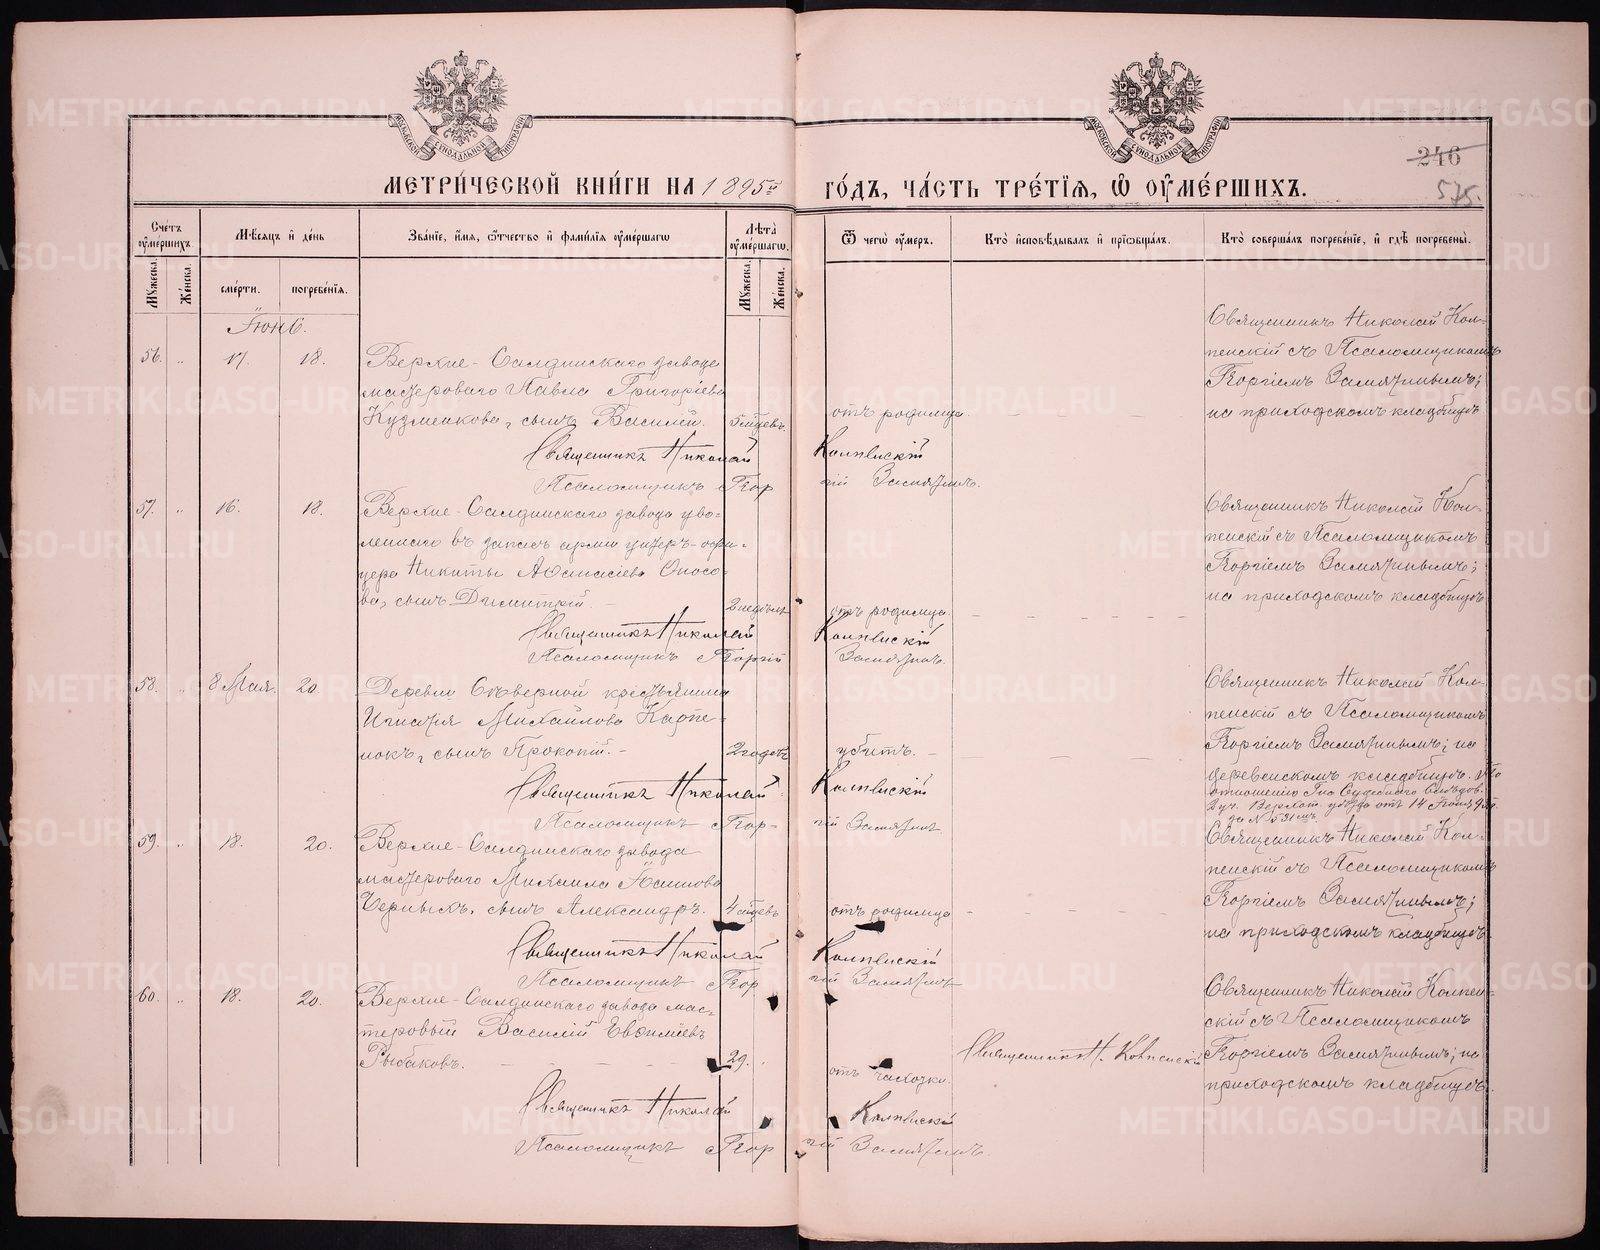 МЕТРИ́ЧЕСКОЙ КНИ́ГИ НА 1895й ГО́ДЪ, ЧА́СТЬ ТРЕ́ТІѦ, Ѡ҆ ОУ҆МЕ́РШИХЪ.
246
575.
Сче́тъ оу҆ме́ршихъ.
Мѣ́сяцъ и҆ де́нь
Зва́нїе, и҆́мя, ѻ҆́тчество и҆ фами́лїя оу҆ме́ршагѡ
Лѣ́та оу҆ме́ршагѡ.
Ѿ чегѡ̀ оу҆́меръ.
Кто̀ и҆сповѣ́дывалъ и҆ прїѡбща́лъ.
Кто̀ соверша́лъ погребе́нїе, и҆ гдѣ̀ погребены̀.
Мꙋ́жеска.
Же́нска.
сме́рти.
погребе́нїя.
Мꙋ́жеска.
Же́нска.
Іюнь.
56. " 17. 18.
Верхне-Салдинскаго завода
мастероваго Павла Григоріева
Кузменкова, сынъ Василій.
5 мѣсяцевъ.
отъ родимца.
Священникъ Николай Кол-
пенскій съ Псаломщикомъ
Георгіемъ Замятнинымъ;
на приходскомъ кладбищѣ
Священникъ Николай Колпенскій
Псаломщикъ Георгій Замятнинъ.
57. " 16. 18.
Верхне-Салдинскаго завода уво-
леннаго въ запасъ арміи унтеръ-офи-
цера Никиты Аѳанасіева Оносо-
ва, сынъ Димитрій.
2 недѣль
отъ родимца.
Священникъ Николай Кол-
пенскій съ Псаломщикомъ
Георгіемъ Замятнинымъ;
на приходскомъ кладбищѣ
Священникъ Николай Колпенскій
Псаломщикъ Георгій Замятнинъ.
58. " 8 Мая. 20.
Деревни Сѣверной крестьянина
Игнатія Михайлова Карпе-
нокъ, сынъ Прокопій.
2 годовъ
убитъ.
Священникъ Николай Кол-
пенскій съ Псаломщикомъ
Георгіемъ Замятнинымъ; на
деревенскомъ кладбищѣ. По
отношенію Гна Судебнаго Слѣдов.
2 уч. Верхот. уѣзда отъ 14 Іюня
за № 531мъ
Священникъ Николай Колпенскій
Псаломщикъ Георгій Замятнинъ
59. " 18. 20.
Верхне-Салдинскаго завода
мастероваго Михаила
Черныхъ, сынъ Александръ.
4 мѣсяцевъ
отъ родимца
Священникъ Николай Кол-
пенскій съ Псаломщикомъ
Георгіемъ Замятнинымъ;
на приходскомъ кладбищѣ
Священникъ Николай Колпенскій
Псаломщикъ Георгій Замятнинъ
60. " 18. 20.
Верхне-Салдинскаго завода мас-
теровый Василій Евѳиміевъ
Рыбаковъ.
29.
отъ чахотки.
Священникъ Н. Колпенскій
Священникъ Николай Колпен-
скій съ Псаломщикомъ
Георгіемъ Замятнинымъ; на
приходскомъ кладбищѣ.
Священникъ Николай Колпенскій
Псаломщикъ Георгій Замятнинъ.
METRIKI.GASO-URAL.RU